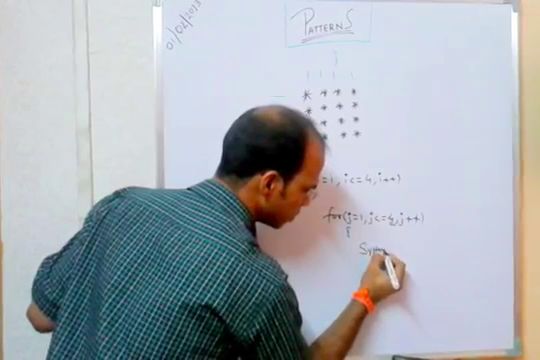 10/10/2013
PATTERNS
* * * *
* * * *
* * * *
* * *
=1, i<=4, i++)
for(j=1, j<=4, j++)
{
Sys